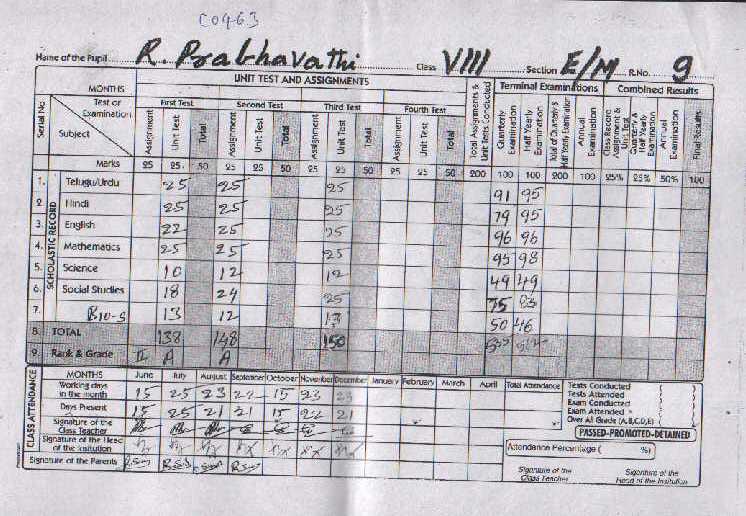 C0963
Name of the Pupil R. Prabhavathi Class VIII Section E/M R.No. 9
UNIT TEST AND ASSIGNMENTS Terminal Examinations Combined Results
MONTHS
Serial No. Test or Examination Subject First Test Second Test Third Test Fourth Test
Assignment Unit Test Total Assignment Unit Test Total Assignment Unit Test Total Assignment Unit Test Total Total Assignments & Unit Tests Conducted Quarterly Examination Half Yearly Examination Total of Quarterly & Half Yearly Examination Annual Examination Class Record Assignment & Unit Test Quarterly & Half Yearly Examination Annual Examination Final Results
Marks 25 25 50 25 25 50 25 25 50 25 25 50 200 100 100 200 100 25% 25% 50% 100
SCHOLASTIC RECORD
1. Telugu/Urdu 25 25 25 91 95
2 Hindi 25 25 25 79 95
3. English 22 25 25 96 96
4. Mathematics 25 25 25 95 98
5. Science 10 12 12 49 49
6. Social Studies 18 24 25 75 83
7. Bio-S 13 12 13 50 46
8. TOTAL 138 148 150
9. Rank & Grade II A A
CLASS ATTENDANCE
MONTHS June July August September October November December January February March April Total Attendance
Working days in the month 15 25 23 22 15 23 23
Days Present 15 25 21 21 15 22 21
Signature of the Class Teacher
Signature of the Head of the Institution
Signature of the Parents
Tests Conducted ( )
Tests Attended ( )
Exam Conducted ( )
Exam Attended ( )
Over All Grade (A,B,C,D,E) ( )
PASSED-PROMOTED-DETAINED
Attendance Percentage ( %)
Signature of the Class Teacher Signature of the Head of the Institution